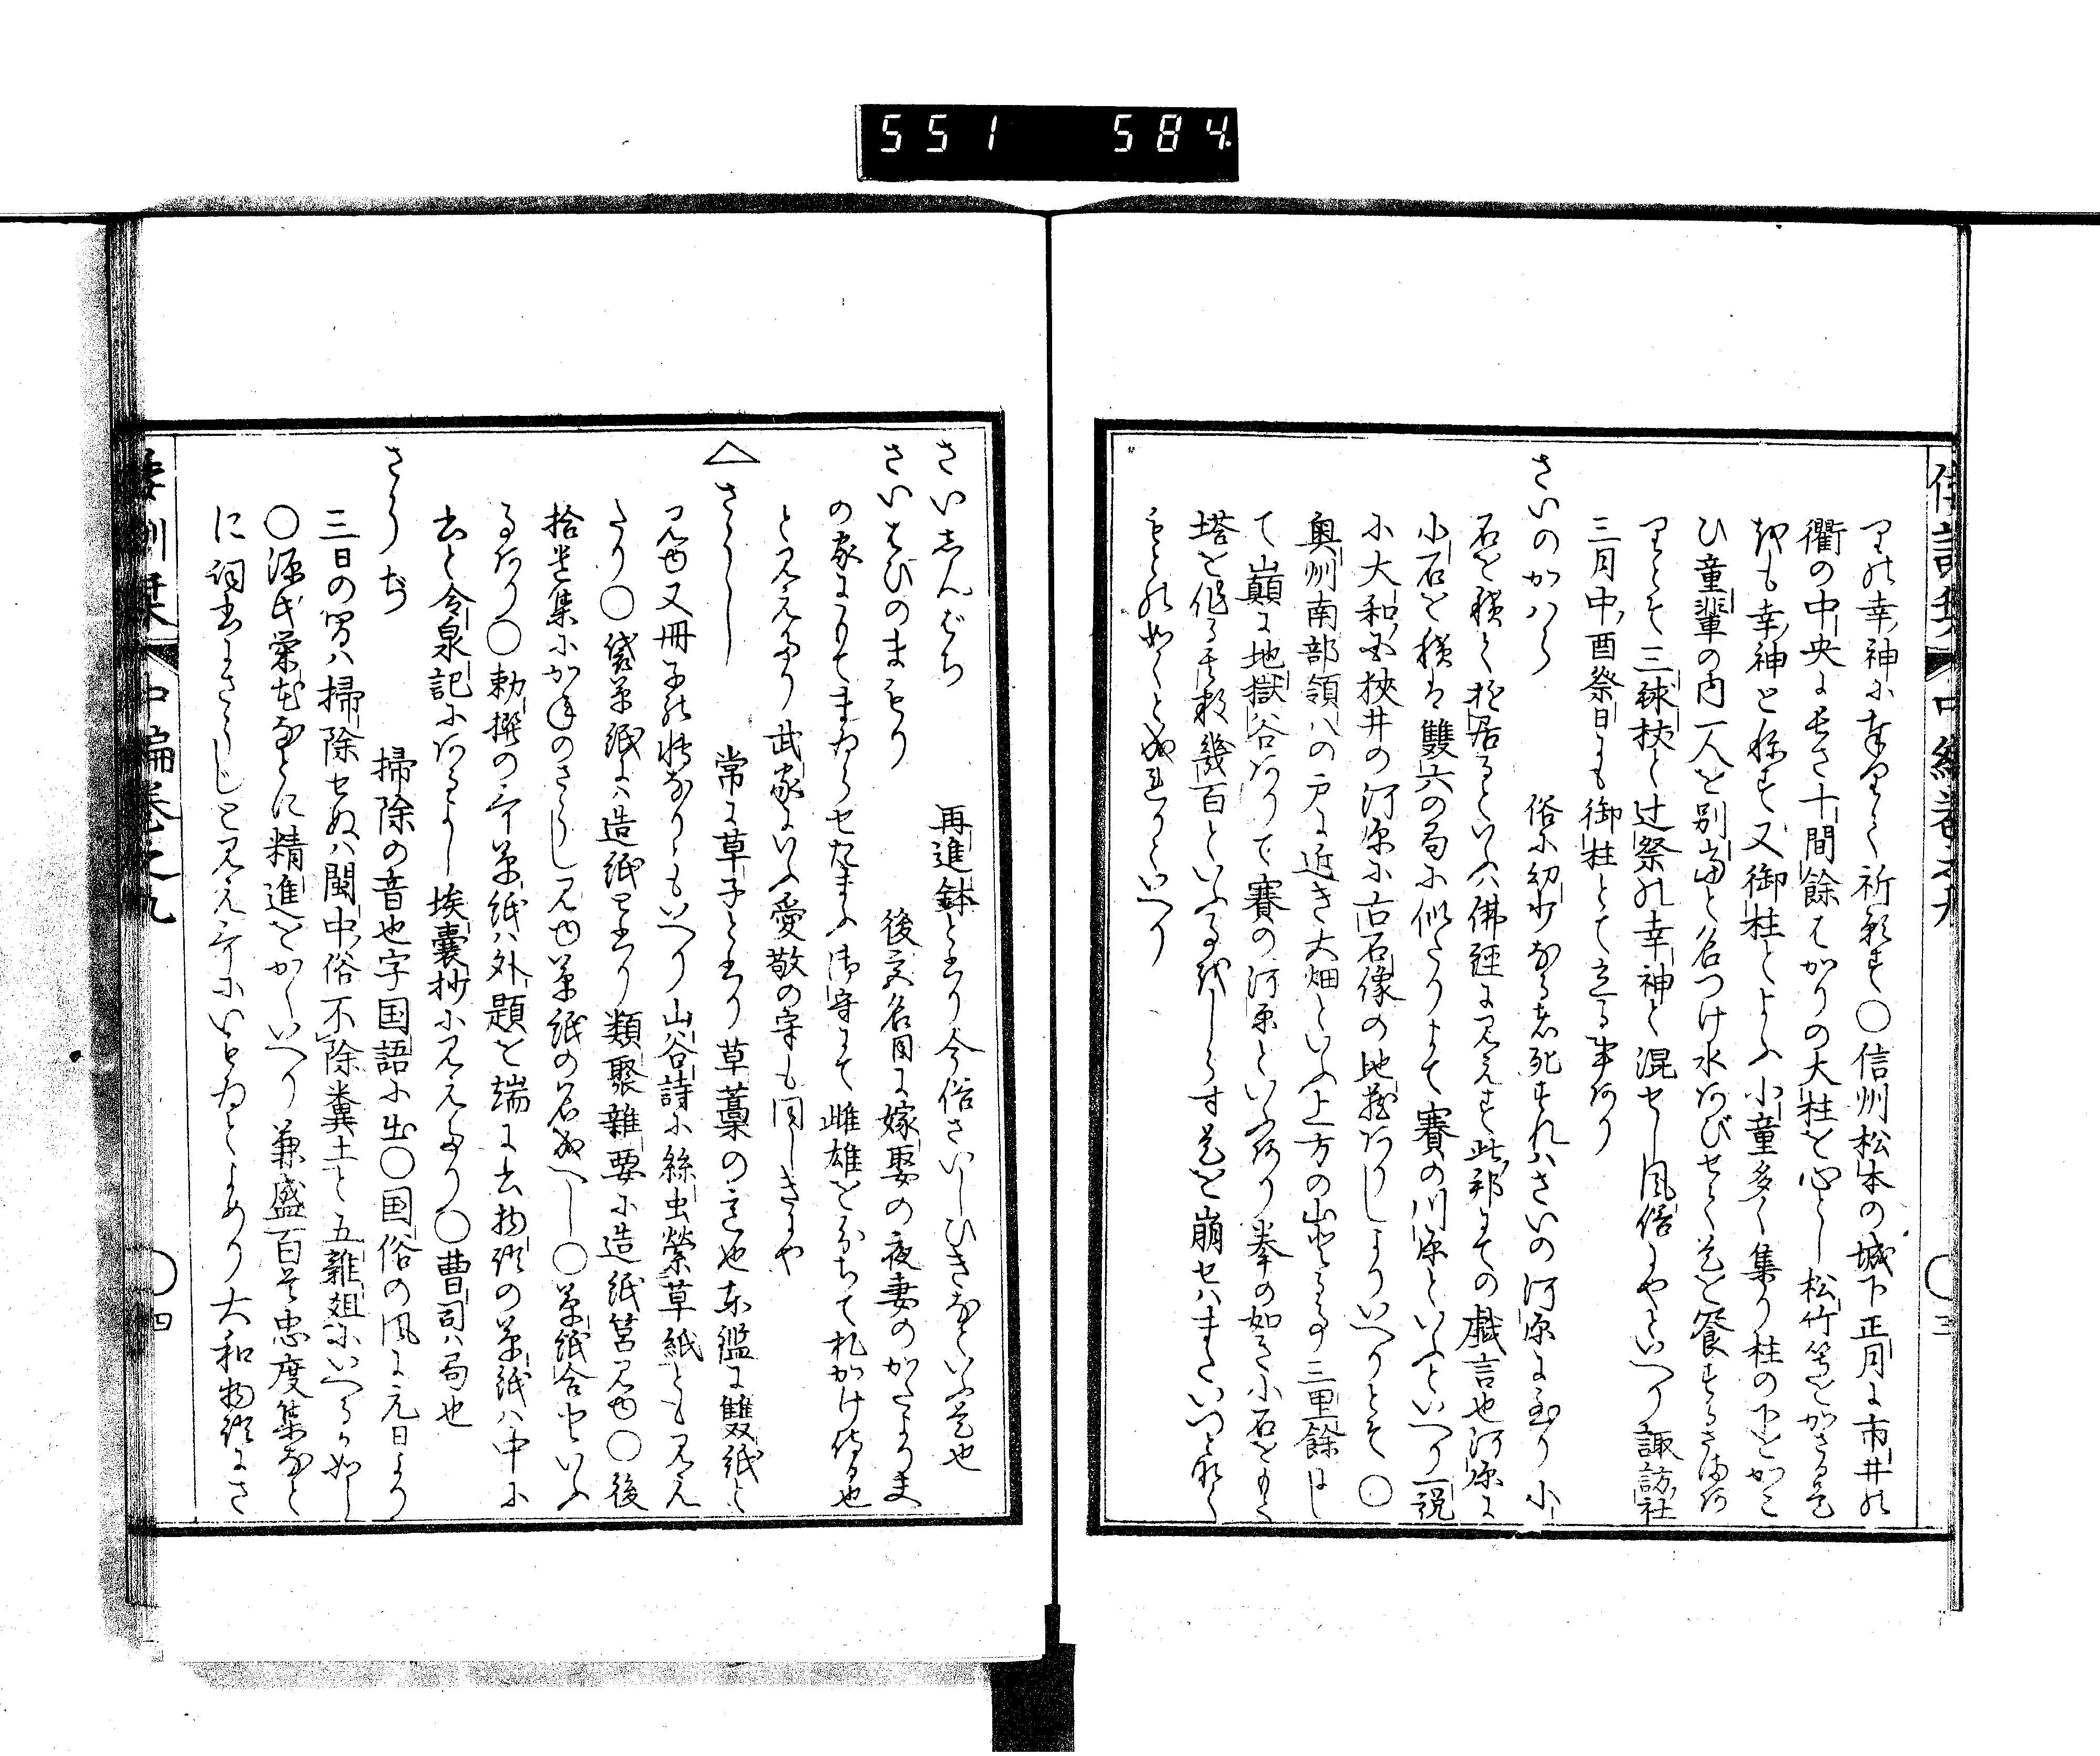 551 584
倭訓栞 中編巻之九 三
里の幸神に奉りて祈影す〇信州松本の城下正月に市井の
衢の中央に長さ十間餘はかりの大柱を心とし松竹等をかさる是
をも幸神と称す又御柱ともよふ小童多く集り柱の下をかこ
ひ童輩の内一人を別當と名つけ水あびせて是を饗するさまあ
りとそ三毬杖と辻祭の幸神と混せし風俗にやといへり諏訪社
三月中酉祭日にも御柱とて立る事あり
さいのかはら 俗に幼少なる者死すれハさいの河原に至り小
石を積て居るといふハ佛經に見えす此邦にての戯言也河原に
小石を積ハ雙六の局に似たりよて賽の川原といふといへり一説
に大和国狹井の河原に古石像の地蔵ありしよりいへりとそ〇
奥州南部領八の戸に近き大畑といふ上方の山を登る事三里餘にし
て山巓に地獄谷ありて賽の河原といふあり拳の如き小石をもて
塔を作る其数幾百といふをしらす是を崩せハまたいつとなく
もとの如くと成れりといへり
さいしんばち 再進鉢と書り今俗さいしひきなといふ是也
さいはひのまもり 後宮名目に嫁娶の夜妻のかたよりま
の家にうりてまゐらせたまふ御守にて雌雄をわかちて札かけ侍る也
と見えたり武家にいふ愛敬の守も同しきにや
△さうし 常に草子と書り草藁の意也東鑑に雙紙と
見ゆ又冊子の轉なりともいへり山谷詩に絲虫縈草紙とも見え
たり〇袋草紙には造紙と書り類聚雜要に造紙筥見ゆ〇後
拾遺集にかほのさうし見ゆ草紙の名成へし〇草紙合せといふ
るあり〇勅撰の哥草紙ハ外題を端に書物語の草紙ハ中に
書と令泉記にあるよし埃囊抄に見えたり〇曹司ハ局也
さうぢ 掃除の音也字国語に出〇国俗の風に元日より
三日の間ハ掃除せぬハ閩中俗不除糞土と五雜俎にいへるか如し
〇源氏栄花なとに精進をかくいへり兼盛百首忠度集なと
に詞書にさうしと見え哥にいもゐとよめり大和物語にさ
倭訓栞 中編巻之九 四